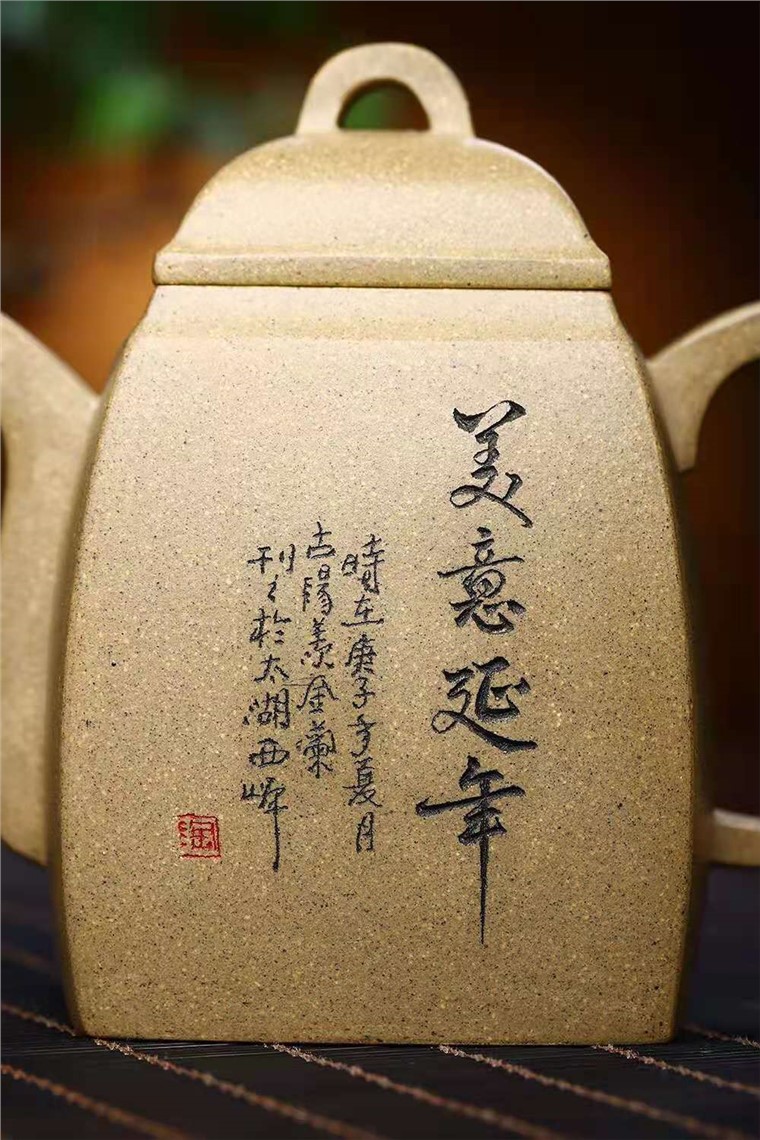 美意延年
時在庚子年夏月
古陽羡金蘭
刊之於太湖西岸